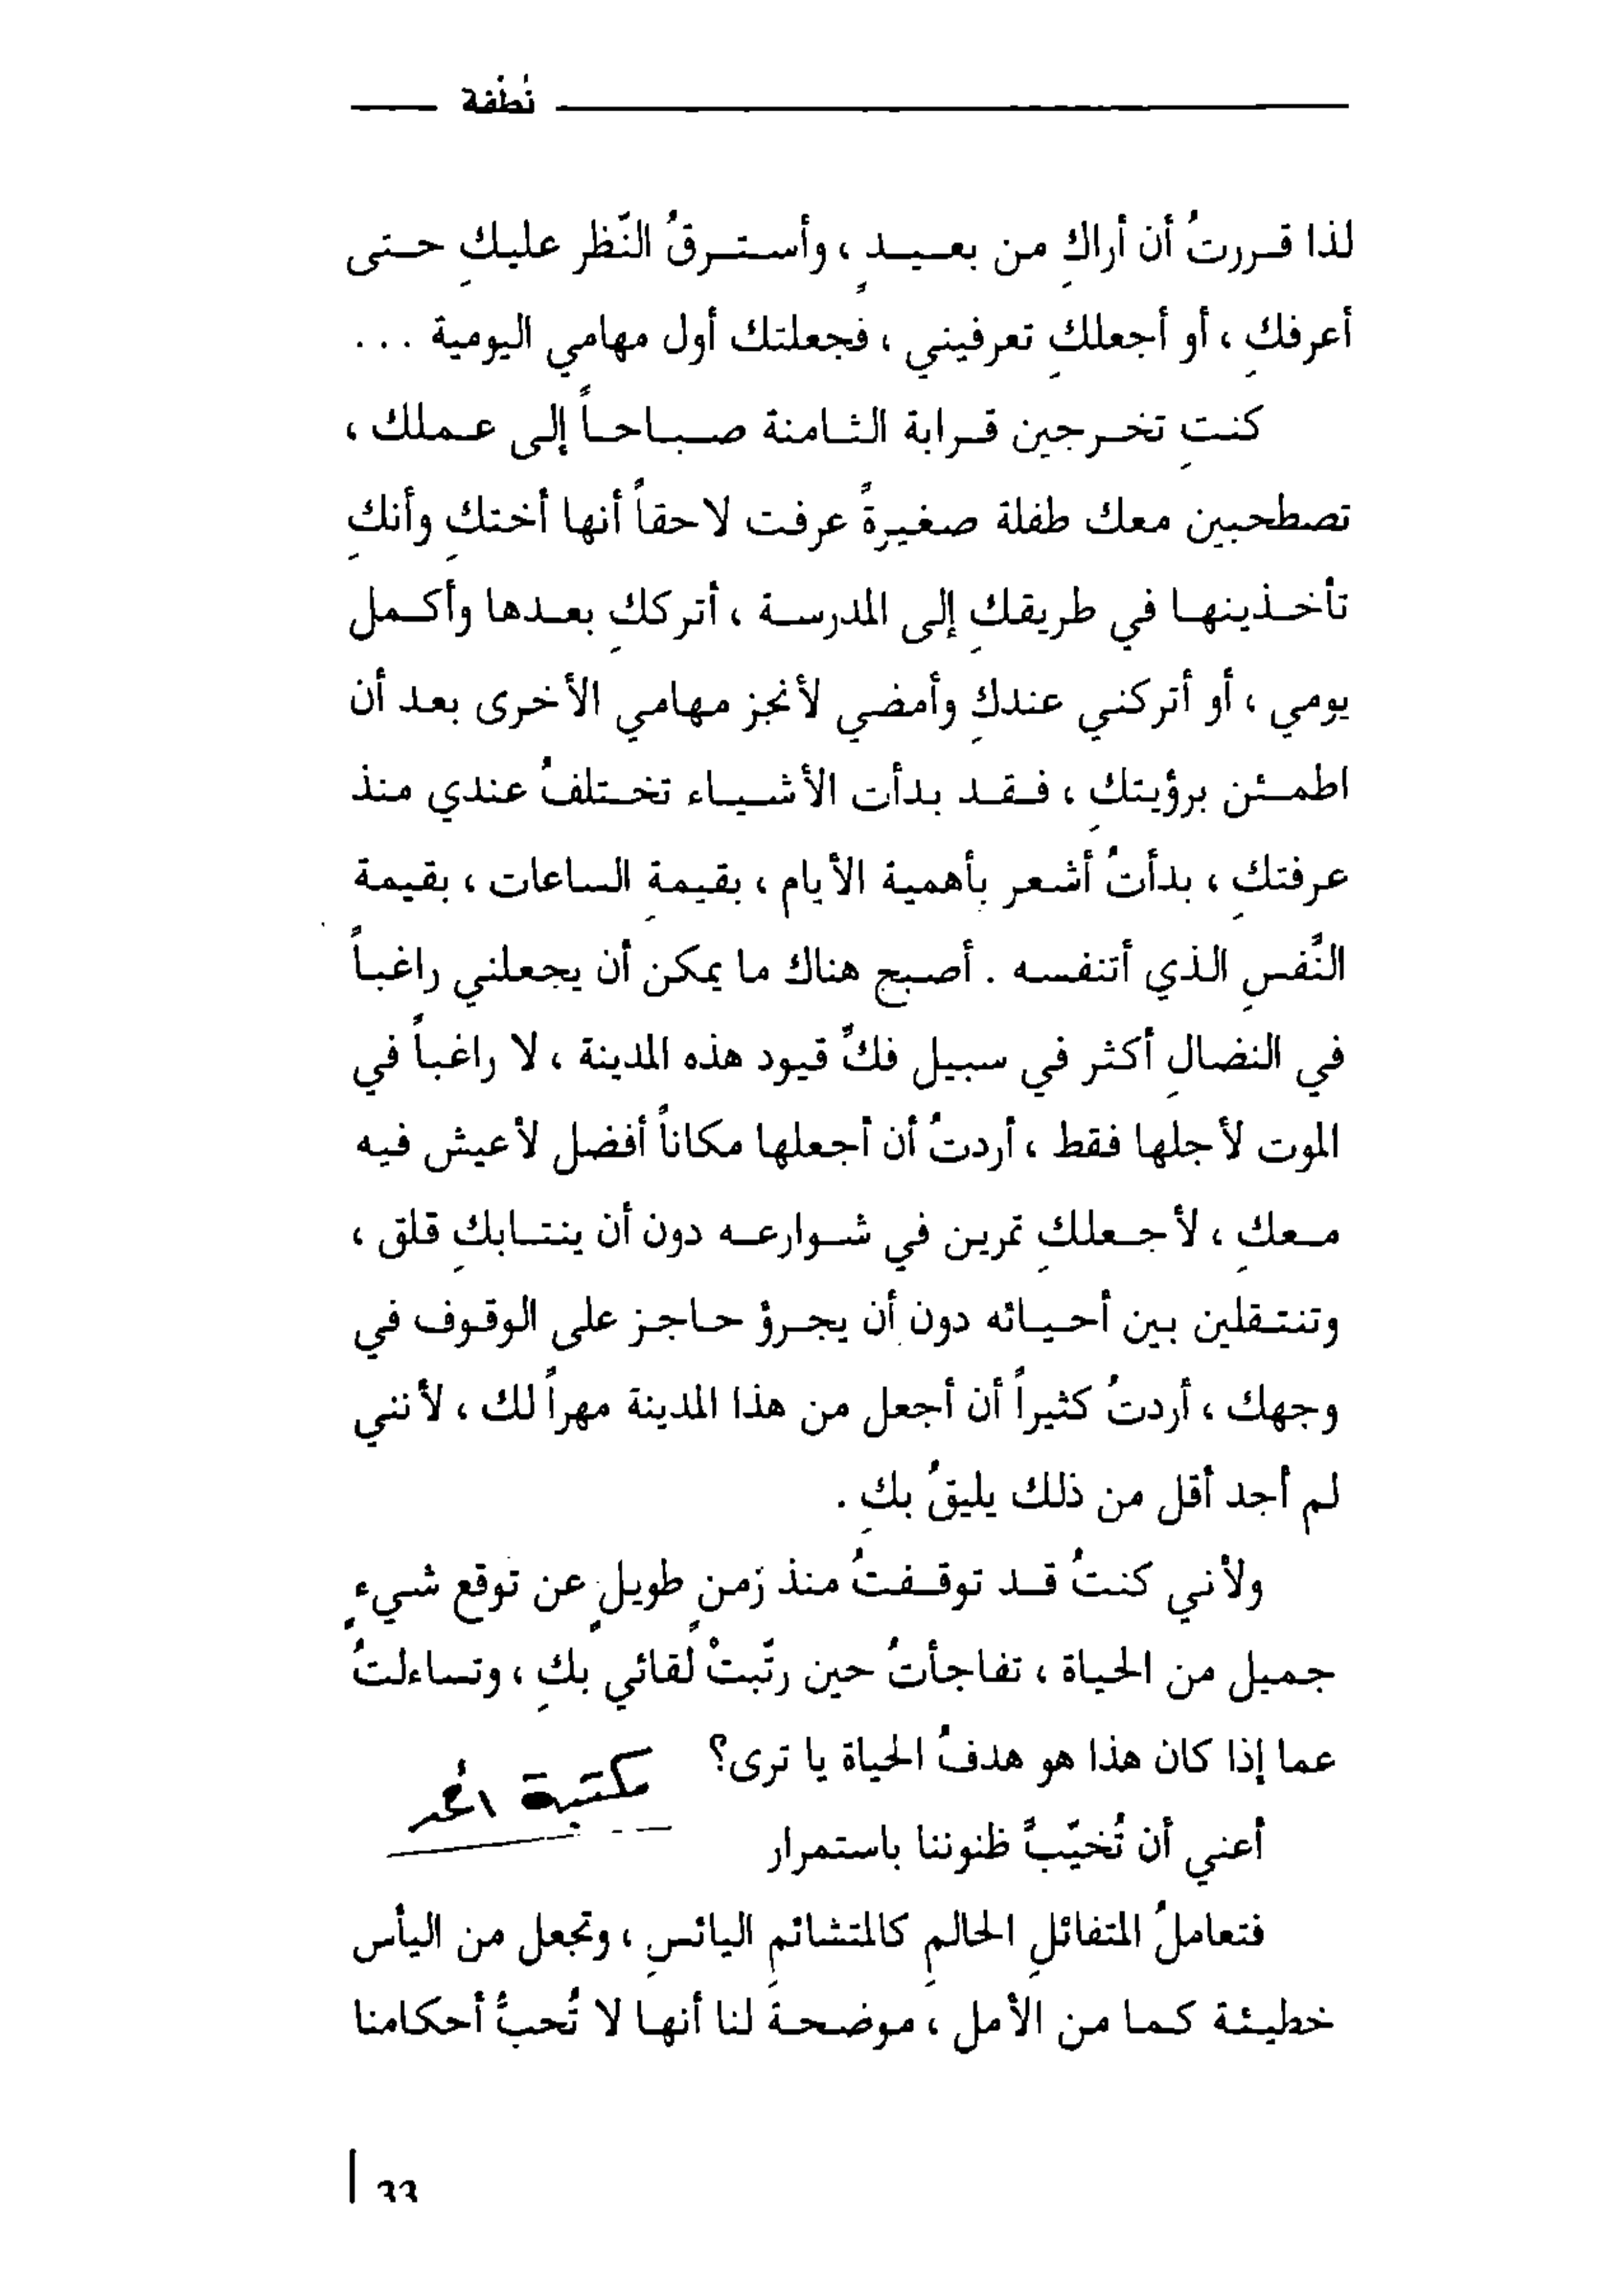 نُطْفَة
لذا قررتُ أن أراكِ من بعيدٍ ، وأسترقُ النّظر عليكِ حتى
أعرفكِ ، أو أجعلكِ تعرفيني ، فجعلتك أول مهامي اليومية . . .
كنتِ تخرجين قرابة الثامنة صباحاً إلى عملك ،
تصطحبين معك طفلة صغيرةً عرفت لاحقاً أنها أختكِ وأنكِ
تأخذينها في طريقكِ إلى المدرسة ، أترككِ بعدها وأكمل
يومي ، أو أتركني عندكِ وأمضي لأنجز مهامي الأخرى بعد أن
اطمئن برؤيتكِ ، فقد بدأت الأشياء تختلفُ عندي منذ
عرفتكِ ، بدأتُ أشعر بأهمية الأيام ، بقيمةِ الساعات ، بقيمة
النَّفسِ الذي أتنفسه . أصبح هناك ما يمكن أن يجعلني راغباً
في النضالِ أكثر في سبيل فكِّ قيود هذه المدينة ، لا راغباً في
الموت لأجلها فقط ، أردتُ أن أجعلها مكاناً أفضل لأعيش فيه
معكِ ، لأجعلكِ تمرين في شوارعه دون أن ينتابكِ قلق ،
وتنتقلين بين أحيائه دون أن يجرؤ حاجز على الوقوف في
وجهك ، أردتُ كثيراً أن أجعل من هذا المدينة مهراً لك ، لأنني
لم أجد أقل من ذلك يليقُ بكِ .
ولأني كنتُ قد توقفتُ منذ زمنٍ طويلٍ عن توقع شيءٍ
جميل من الحياة ، تفاجأتُ حين رتّبتْ لقائي بكِ ، وتساءلتُ
عما إذا كان هذا هو هدفُ الحياة يا ترى؟
مكتبة
أعني أن تُخيّبَ ظنوننا باستمرار
فتعاملُ المتفائلِ الحالمِ كالمتشائمِ اليائسِ ، وتجعل من اليأس
خطيئة كما من الأمل ، موضحةً لنا أنها لا تُحبُّ أحكامنا
٣٣